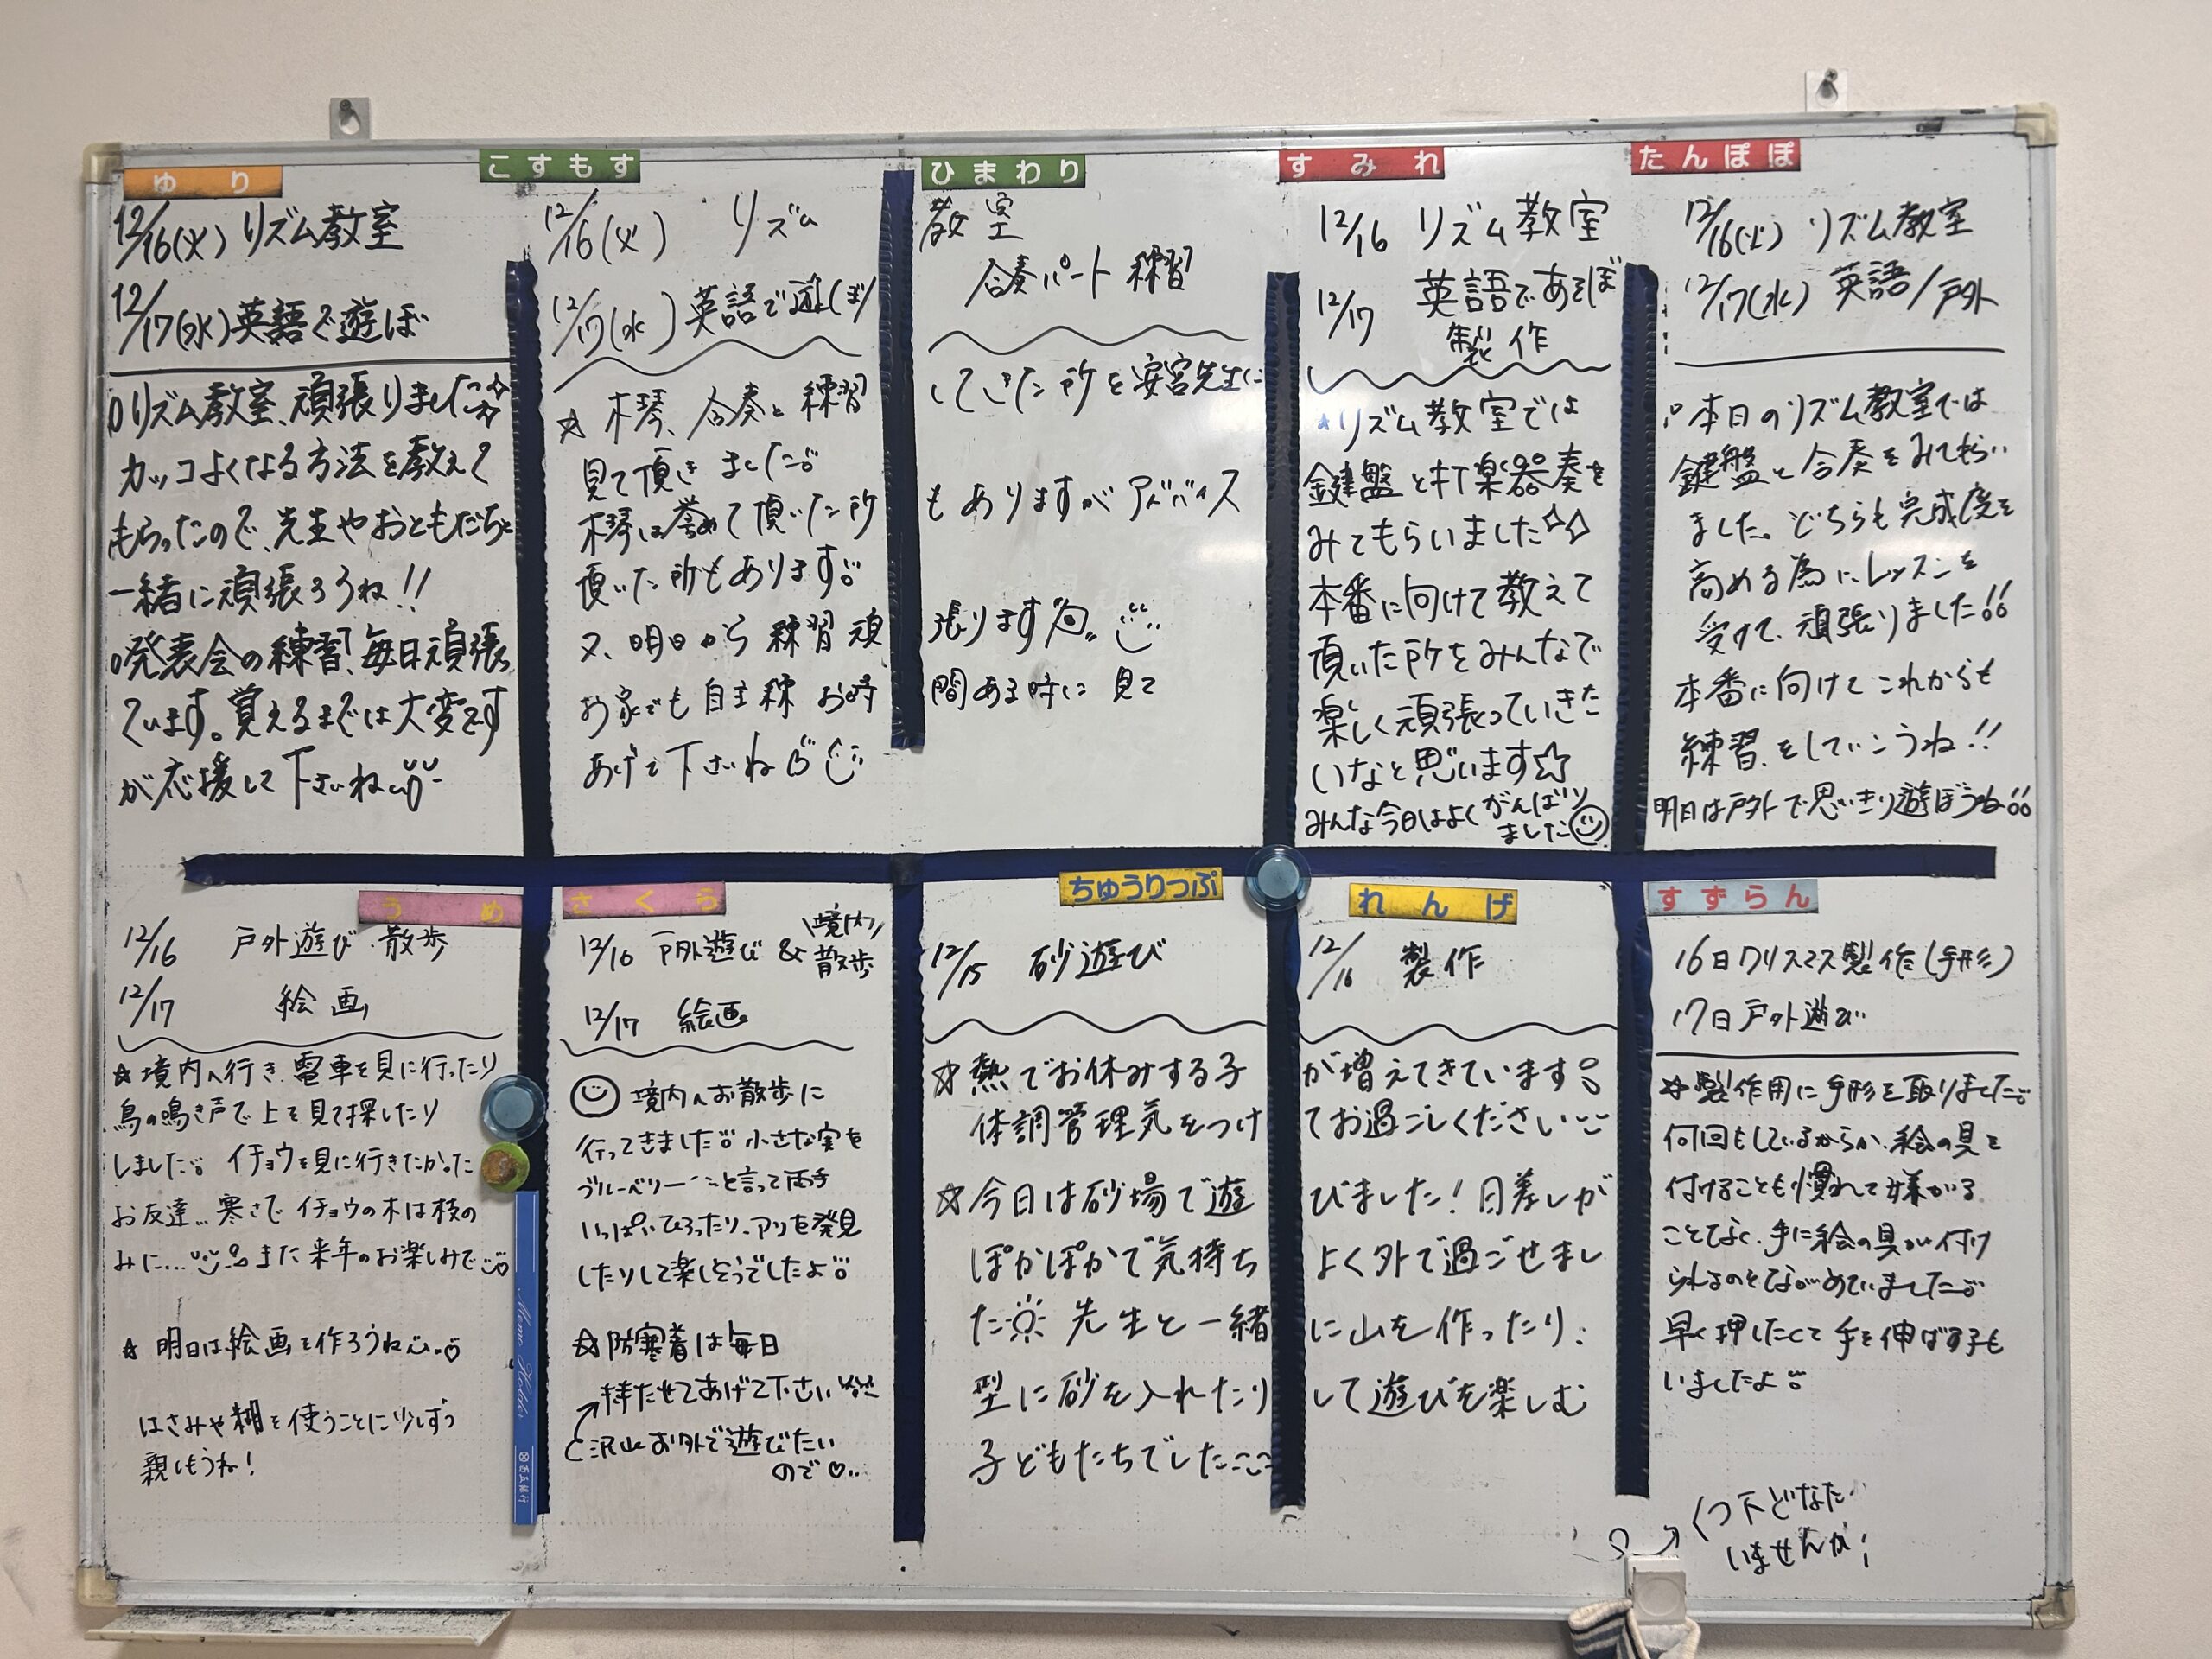 ゆり
12/16(火) リズム教室
12/17(水) 英語で遊ぼ
リズム教室、頑張りました
カッコよくなる方法を教えて
もらったので、先生やおともだちと
一緒に頑張ろうね!!
発表会の練習、毎日頑張っ
ています。覚えるまでは大変です
が応援して下さいね
こすもす ひまわり
12/16(火) リズム教室
合奏パート練習
12/17(水) 英語で遊ぼ
☆ 木琴、合奏と練習してきた所を安宮先生に
見て頂きました
木琴は誉めて頂いた所もありますがアドバイス
頂いた所もあります
又、明日から練習頑張ります
お家でも自主練お時間ある時に見て
あげて下さいね
すみれ
12/16 リズム教室
12/17 英語であそぼ
製作
☆リズム教室では
鍵盤と打楽器奏を
みてもらいました☆☆
本番に向けて教えて
頂いた所をみんなで
楽しく頑張っていきた
いなと思います☆
みんな今日はよくがんばり
ました
たんぽぽ
12/16(火) リズム教室
12/17(水) 英語/戸外
本日のリズム教室では
鍵盤と合奏をみてもらい
ました。どちらも完成度を
高める為にレッスンを
受けて、頑張りました
本番に向けてこれからも
練習をしていこうね!!
明日は戸外で思いきり遊ぼうね
うめ
12/16 戸外遊び・散歩
12/17 絵画
☆境内へ行き、電車を見に行ったり
鳥の鳴き声で上を見て探したり
しました イチョウを見に行きたかった
お友達...寒さでイチョウの木は枝の
みに... また来年のお楽しみで
☆ 明日は絵画を作ろうね
はさみや糊を使うことに少しずつ
親しもうね!
さくら
12/16 戸外遊び & 境内散歩
12/17 絵画
境内へお散歩に
行ってきました 小さな実を
ブルーベリー と言って両手
いっぱいひろったり、アリを発見
したりして楽しそうでしたよ
☆防寒着は毎日
持たせてあげて下さい
沢山お外で遊びたい
ので
ちゅうりっぷ れんげ
12/15 砂遊び
12/16 製作
☆熱でお休みする子が増えてきています
体調管理気をつけてお過ごしください
☆今日は砂場で遊びました!日差しが
ぽかぽかで気持ちよく外で過ごせまし
た 先生と一緒に山を作ったり、
型に砂を入れたりして遊びを楽しむ
子どもたちでした
すずらん
16日クリスマス製作(手形)
17日戸外遊び
☆製作用に手形を取りました
何回もしているからか、絵の具を
付けることも慣れて嫌がる
ことなく、手に絵の具が付け
られるのをながめていました
早く押したくて手を伸ばす子も
いましたよ
くつ下どなたか
いませんか
Memo Holder
百五銀行